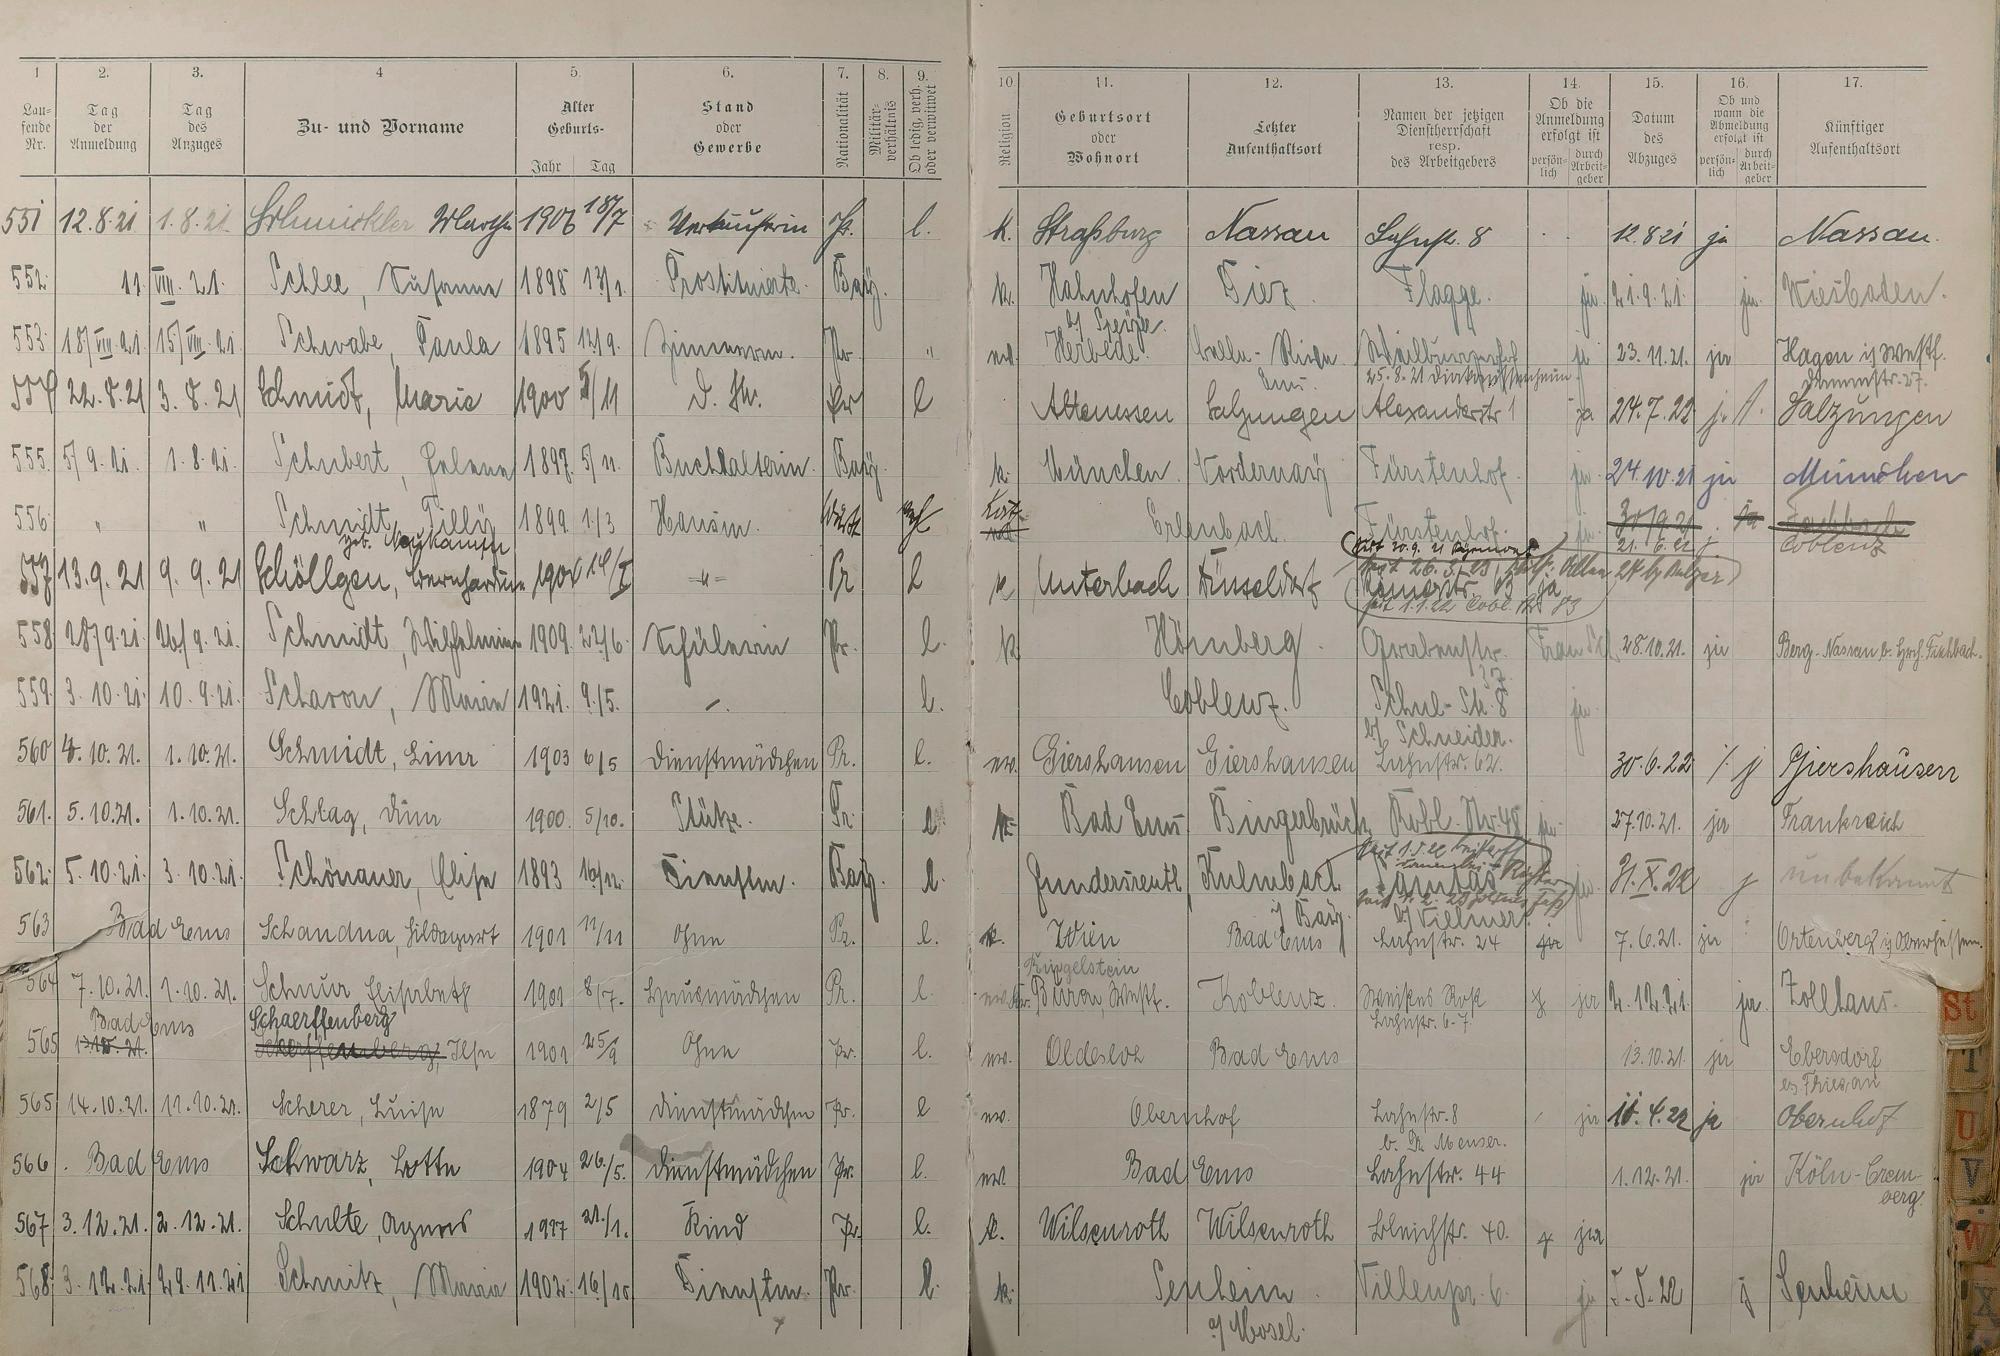 1 2. 3. 4 5. 6. 7. 8. 9. 10 11. 12. 13. 14. 15. 16. 17.
Lau-
fende
Nr.
Tag
der
Anmeldung
Tag
des
Anzuges
Zu- und Vorname
Alter
Geburts-
Jahr Tag
Stand
oder
Gewerbe
Nationalität
Militär-
verhältnis
Ob ledig, verh.
oder verwitwet
Religion
Geburtsort
oder
Wohnort
Letzter
Aufenthaltsort
Namen der jetzigen
Dienstherrschaft
resp.
des Arbeitgebers
Ob die
Anmeldung
erfolgt ist
persön-
lich
durch
Arbeit-
geber
Datum
des
Abzuges
Ob und
wann die
Abmeldung
erfolgt ist
persön-
lich
durch
Arbeit-
geber
Künftiger
Aufenthaltsort
551 12.8.21 1.8.21. Schmickler Martha 1906 18/7 Verkäuferin Pr. l. k. Straßburg Nassau Lahnstr. 8 12.8 21 ja Nassau.
552. 11 VIII. 21. Schlee, Susanna 1898 13/1. Prostituierte. Bay. k. Hahnhofen Diez Flagge. ja. 21.9.21. ja. Wiesbaden.
b/ Speyer.
553. 18/VIII.21. 15/VIII.21. Schwabe, Paula 1895 12/9. Zimmerm. Pr. " ev. Herbede. 23.11.21. ja Hagen i/ Westf.
25.8.21 Diakonissenheim
554 22.8.21 3.8.21 Schmidt, Marie 1900 5/11 D. M. Pr l Altenessen Salzungen Alexanderstr 1 ja 24.7.22 j. Salzungen
555. 5/9.21. 1.8.21. Schubert, Helene 1897. 5/11. Buchhalterin. Bay. k. München. Vordernay Fürstenhof. ja. 24.10.21 ja München
556. " " Schmidt, Tilly 1899. 1/3 Hausm. Erlenbach. Fürstenhof. ja. 30/9.21 ja Fachbach
geb. Neukamm 21.6.22 j Coblenz
557 13.9.21 9.9.21 Schöllgen, Bernhardine 1904 Pr l k Unterbach Düsseldorf Römerstr. ja
558 28/9.21. 26/9.21. Schmidt, Wilhelmine 1909. 22/6. Schülerin Pr. l. k Hömberg. Grabenstr. 28.10.21. ja Berg-Nassau b. Fischbach.
37.
559. 3.10.21. 10.9.21. Scharon, Maria 1921. 9./5. l. Coblenz. Schul-Str. 8 ja.
b/ Schneider.
560 4.10.21. 1.10.21. Schmidt, Lina 1903 6/5 Dienstmädchen Pr. l. ev. Giershausen Giershausen Lahnstr. 62. 30.6.22 j Giershausen
561. 5.10.21. 1.10.21. Schlag, Anna 1900. 5/10. Stütze. Pr. l k. Bad Ems Bingerbrück Kobl. Str. 48 ja 27.10.21. ja Frankreich
562. 5.10.21. 3.10.21. Schönauer, Elisa 1893 16/12. Dienstm. Bay. l. Kulmbach Caritas 31.X.22 j unbekannt
i/ Bay. b/ Villmer.
563 Bad Ems Schandua, Hildegart 1901 11/11 Ohne Pr. l. k. Wien Bad Ems Lahnstr. 24 ja 7.6.21. ja Ortenberg i/ Oberhessen.
Ringelstein
564 7.10.21. 1.10.21. Schnur Elisabeth 1901 8/7. Hausmädchen Pr. l. Büren, Westf. Koblenz. Weißes Roß ja 2.12.21. ja. Zollhaus.
Lahnstr. 6-7.
Bad Ems Schaerffenberg
565 Ilse 1901 25/9 Ohne Pr. l. ev. Oldesloe Bad Ems 13.10.21. ja Ebersdorf
565 14.10.21. 11.10.21. Scherer, Luise 1879 2/5 Dienstmädchen Pr. l ev. Obernhof Lahnstr. 8 ja 18.4.22 ja Obernhof
b. Dr. Menser.
566. Bad Ems Schwarz, Lotte 1904 26./5. Dienstmädchen Pr. l. ev. Bad Ems Lahnstr. 44 1.12.21. ja Köln-Crem-
berg.
567 3.12.21. 2.12.21. Schulte, Agnes 21./1. Kind Pr. l. k. Wilsenroth Wilsenroth Bleichstr. 40. ja
568. 3.12.21. 29.11.21 Schmitz, Maria 1902. 16/10 Dienstm. Pr. l. k. Senheim. Villenpr. 6. ja 5.5.22 j Senheim
a/ Mosel.
St
T
U
V
W
X